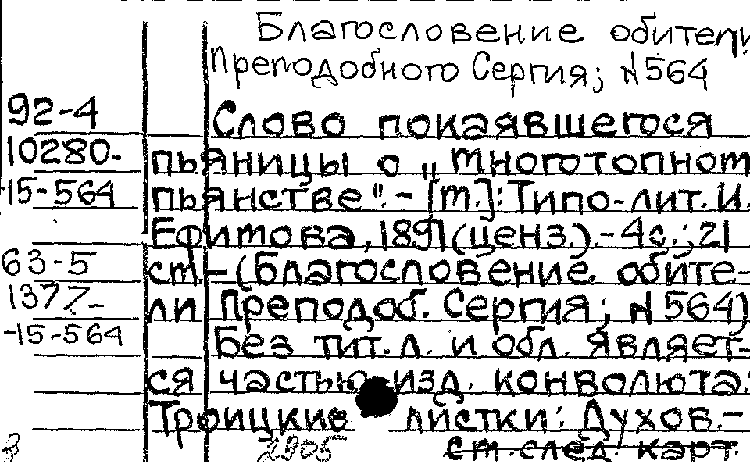 Благословение обители
Преподобного Сергия; №564
92-4 Слово покаявшегося
10280- пьяницы о „многотопном
-15-564 пьянстве". - [М.]: Типо-лит. И.
Ефимова, 1891 (ценз.). - 4с.; 21
63-5 см - (Благословение обите-
1377- ли Преподоб. Сергия; №564)
-15-564 Без тит. л. и обл. Являет-
ся частью изд. конволюта:
Троицкие листки: Духов. -
2905 см. след. карт.